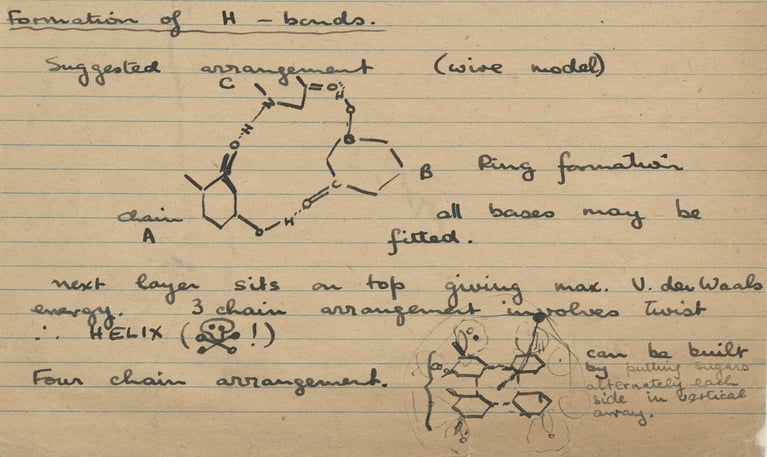 Formation of H - bonds.
Suggested arrangement (wire model)
C
=O
H
N
O
H
O
B
B
Ring formation
C
O
chain
A
O
H
all bases may be
fitted.
next layer sits on top giving max. V. der Waals
energy. 3 chain arrangement involves twist
∴ HELIX ( !)
can be built
by putting sugars
Four chain arrangement.
alternately each
side in vertical
array.